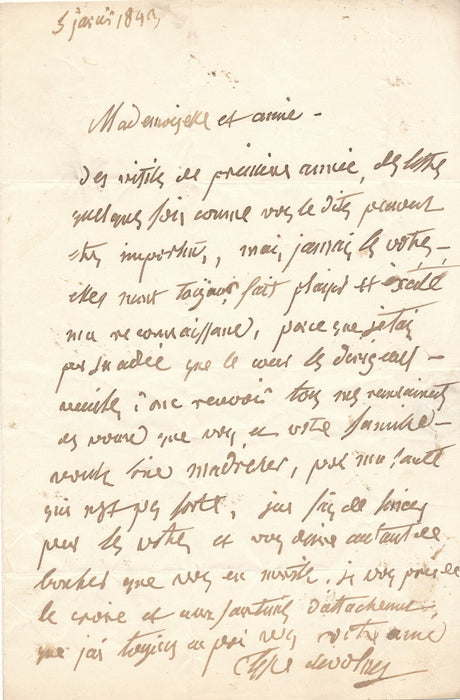 5 janvier 1843
Mademoiselle et amie -
des visites de première année, des lettres
quelques fois comme vous le dites peuvent
être importunes, mais jamais les votres -
elles m'ont toujours fait plaisir et excité
ma reconnaissance, parce que j'étais
persuadée que le cœur les dirigeait -
veuillez donc recevoir tous mes remerciements
des vœux que vous et votre famille -
voulez bien m'adresser, pour ma santé
qui n'est pas forte, j'en fais de
pour les votres et vous désire autant de
que vous en . je vous prie de
le croire et aux sentiments d'attachement,
que j'ai toujours pour vous votre amie